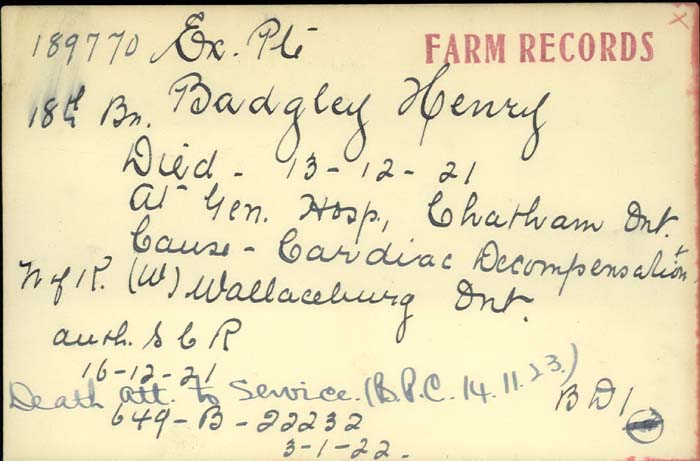 189770 Ex. Pte FARM RECORDS
18th Bn. Badgley Henry
Died - 13-12-21
At Gen. Hosp, Chatham Ont.
Cause - Cardiac Decompensation
N of K. (W) Wallaceburg Ont.
auth. S C R
16-12-21
Death att. to Service. (B.P.C. 14.11.23.)
649-B-22232 B D 1
3-1-22.